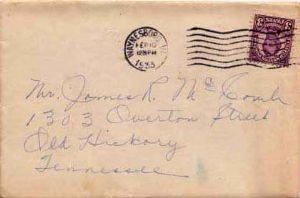 WAYNESBORO
FEB 10
1933
3¢ 3¢
Mr. James R. McComb
1303 Overton Street
Old Hickory
Tennessee